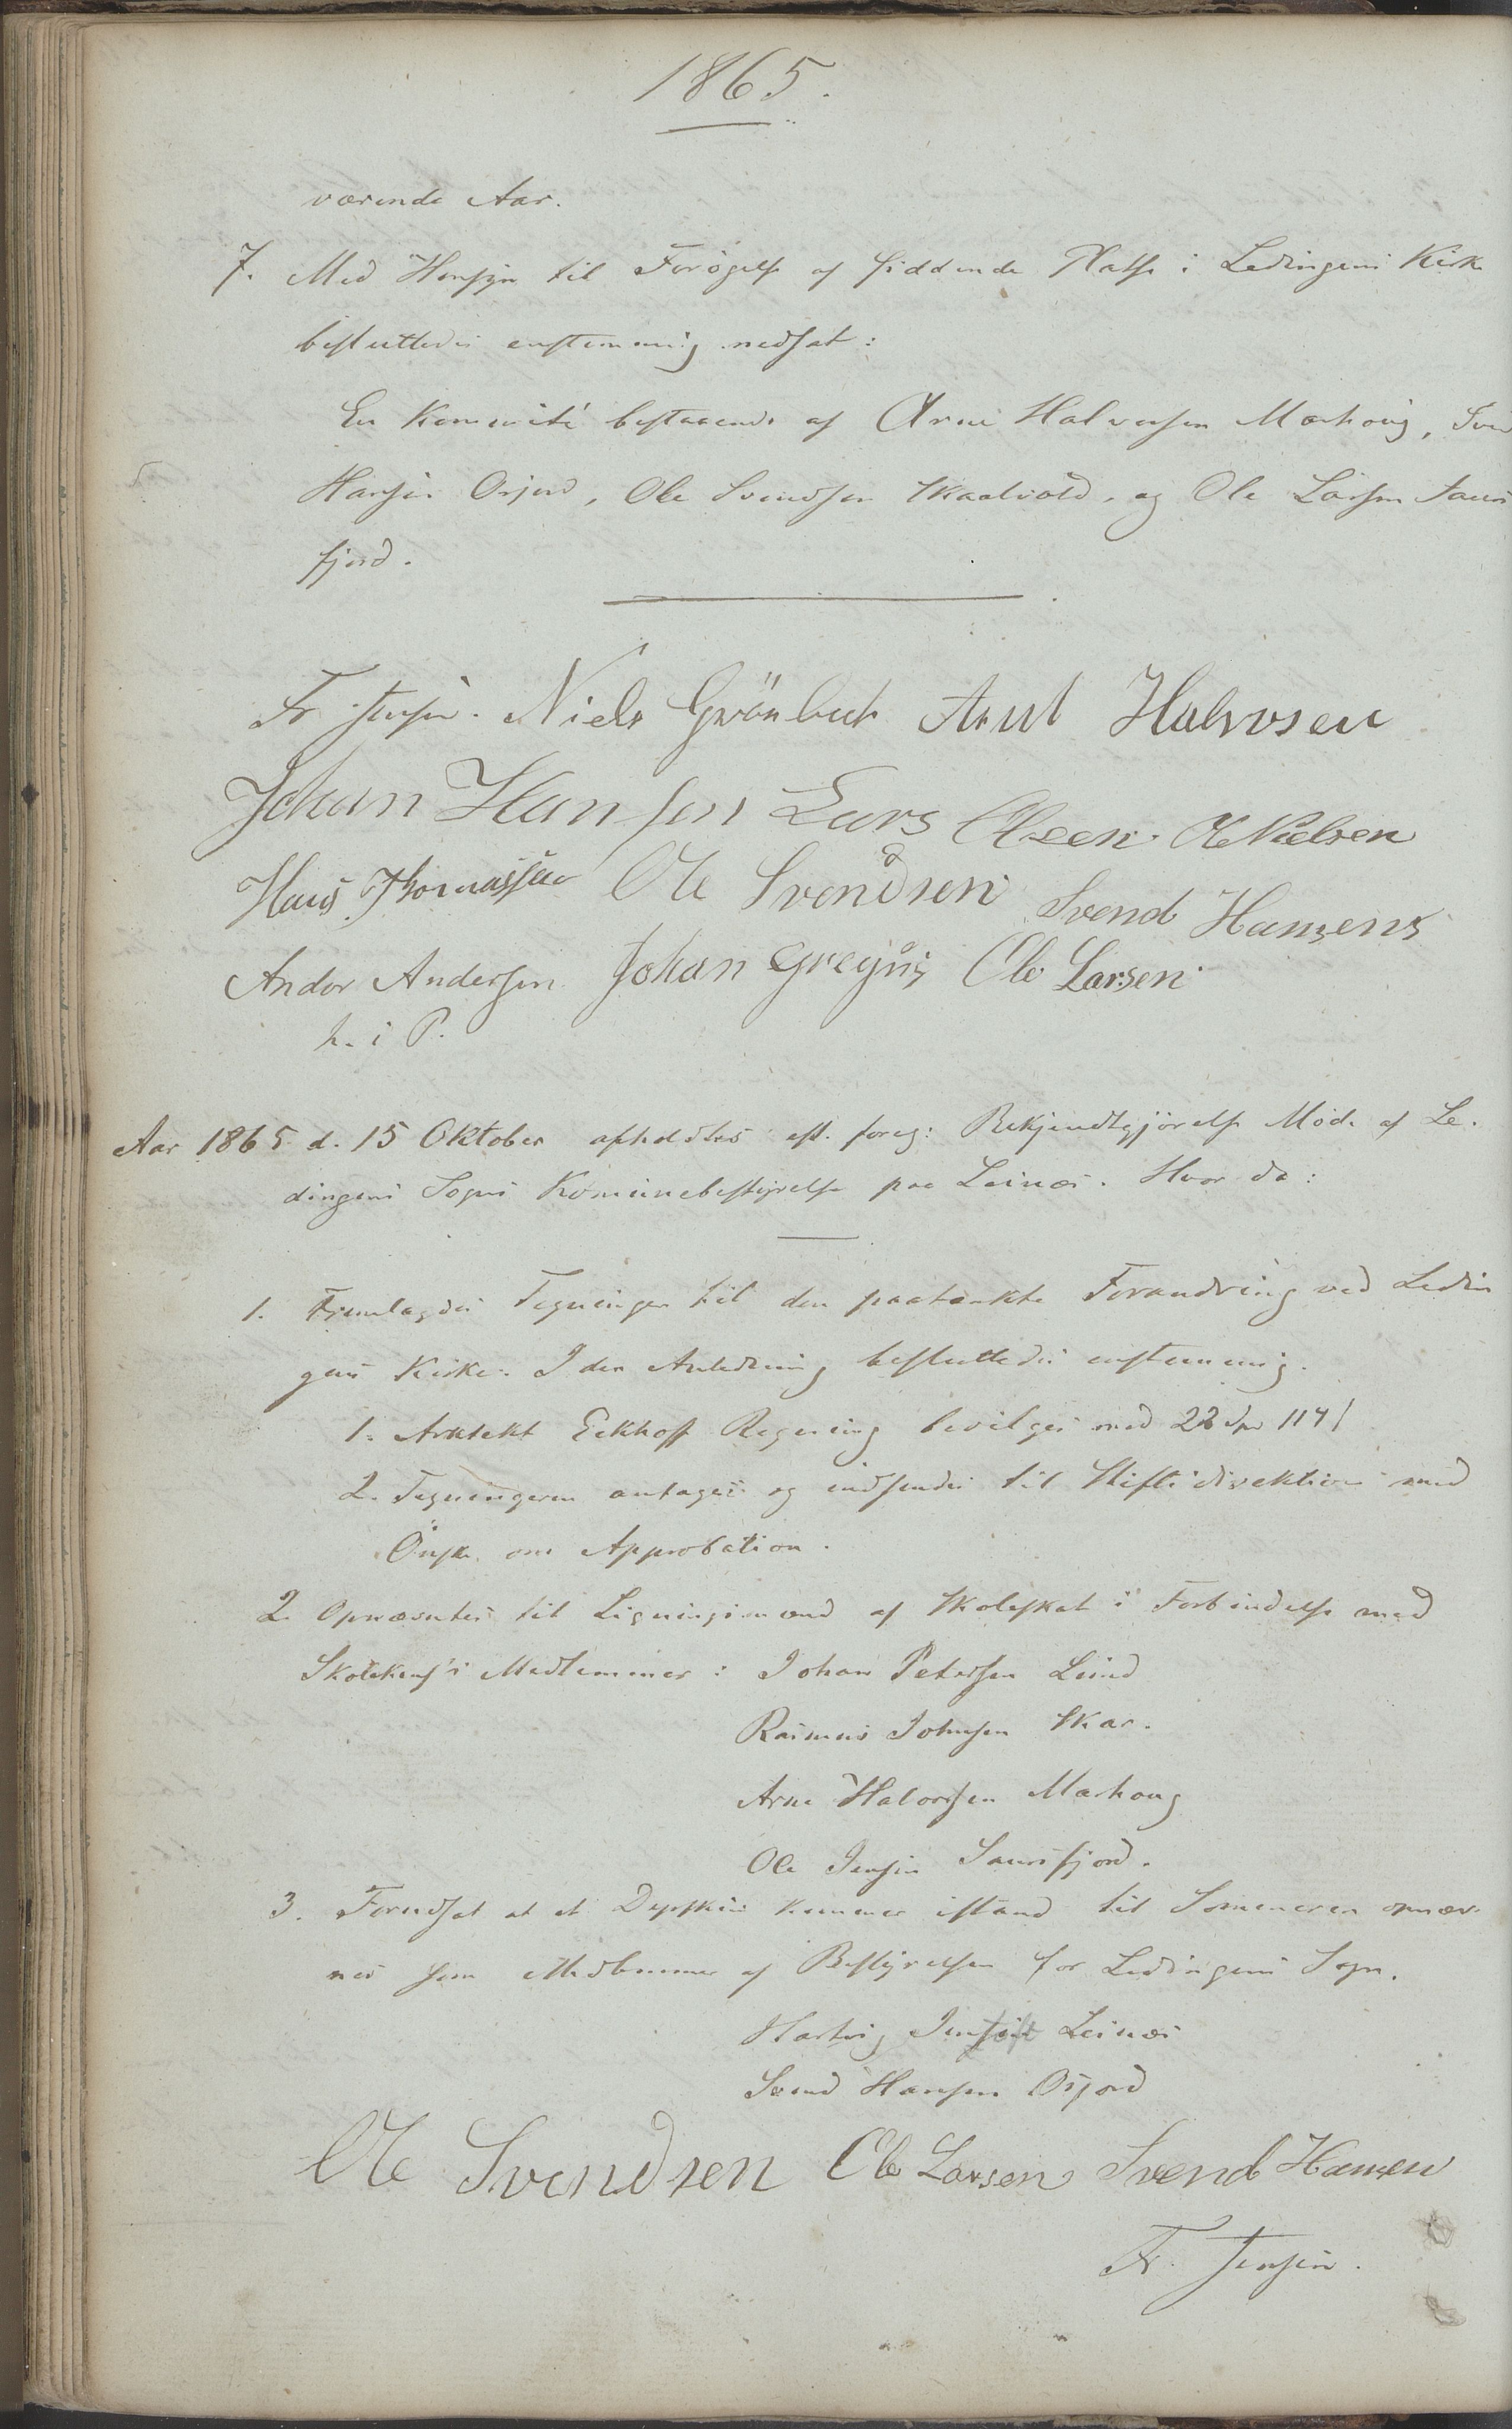 1865.
værende Aar.
7. Med Hensyn til Forøgelse af siddende Platse i Lødingens Kirke
besluttedes enstemmig nedsat:
En Komité bestaaende af Arne Halvorsen Marhoug, Svend
Hansen Osjord, Ole Svendsen Skaalvold, og Ole Larsen Saurs
fjord.
Fr Jensen. Niels Grönbech Arnt Halvosen
Johan Hansen Lars Olsen. O Nielsen
Hans Thomassen Ole Svendsen Svend Hansens
Andor Andersen Johan Greguś Ole Larsen
h. i P.
Aar 1865 d. 15 Oktober afholdtes eft. foreg: Bekjendtgjörelse Möde af Lø-
dingens Sogns Komunebestyrelse paa Leinæs. Hvor da:
1. Fremlagdes Tegninger til den paatænkte Forandring ved Lødin
gens Kirke. I den Anledning besluttedes enstemmig.
1. Arktekt Eckhoff Regning bevilges med 22 Spd 114 s
2. Tegningerne antages og indsendes til Stiftsdirektion med
Önske om Approbation.
2 Opnævntes til Ligningsmænd af Skoleskat i Forbindelse med
Skolekoms's Medlemmer: Johan Petersen Lund
Rasmus Johnsen Skar.
Arne Halvorsen Marhoug
Ole Jensen Saursfjord.
3. Forudsat at et Dypskin kommer istand til Sommeren opnæv-
nes som Medlemmer af Bestyrelsen for Lødingens Sogn.
Hartvig Jentoft Leinæs
Svend Hansen Osjord
Ole Svendsen Ole Larsen Svend Hansen
Fr. Jensen.